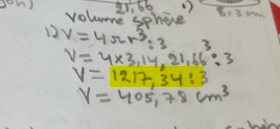 21,66
8,3 cm
volume sphère
1) V = 4πr³ : 3
V = 4×3,14, 21,66³ : 3
V = 1217,34 : 3
V = 405,78 cm³